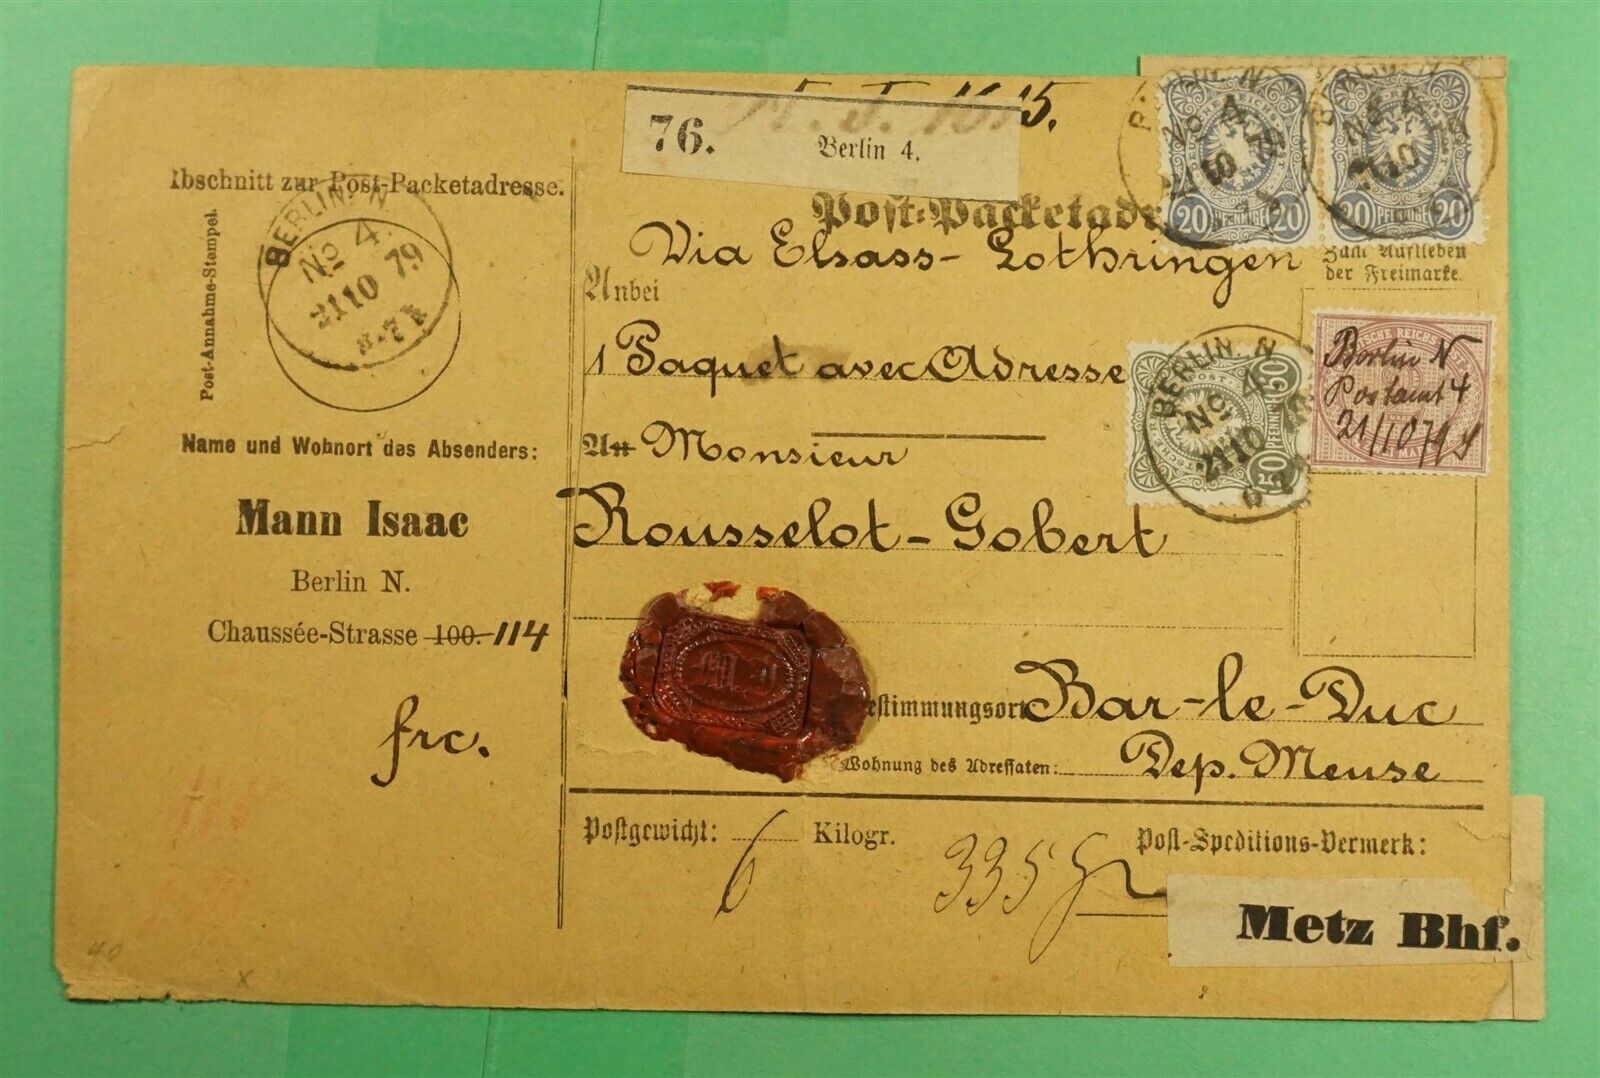 76.
Berlin 4.
Abschnitt zur Post-Packetadresse.
Post-Annahme-Stempel.
BERLIN. N
No 4.
21 10 79
Name und Wohnort des Absenders:
Mann Isaac
Berlin N.
Chaussée-Strasse 100. 114
frc.
Post-Packetadr
Via Elsass-Lothringen
Anbei
1 Paquet avec Adresse
An Monsieur
Rousselot-Gobert
Bestimmungsort Bar-le-Duc
Wohnung des Adressaten: Dep. Meuse
Postgewicht: 6 Kilogr. 335 Gr
Post-Speditions-Vermerk:
Metz Bhf.
20 PFENNIGE 20
20 PFENNIGE 20
Zum Aufkleben
der Freimarke.
BERLIN. N
No 4
21 10 79
50 PFENNIG 50
Berlin N
Postamt 4
21/10 79
40
x